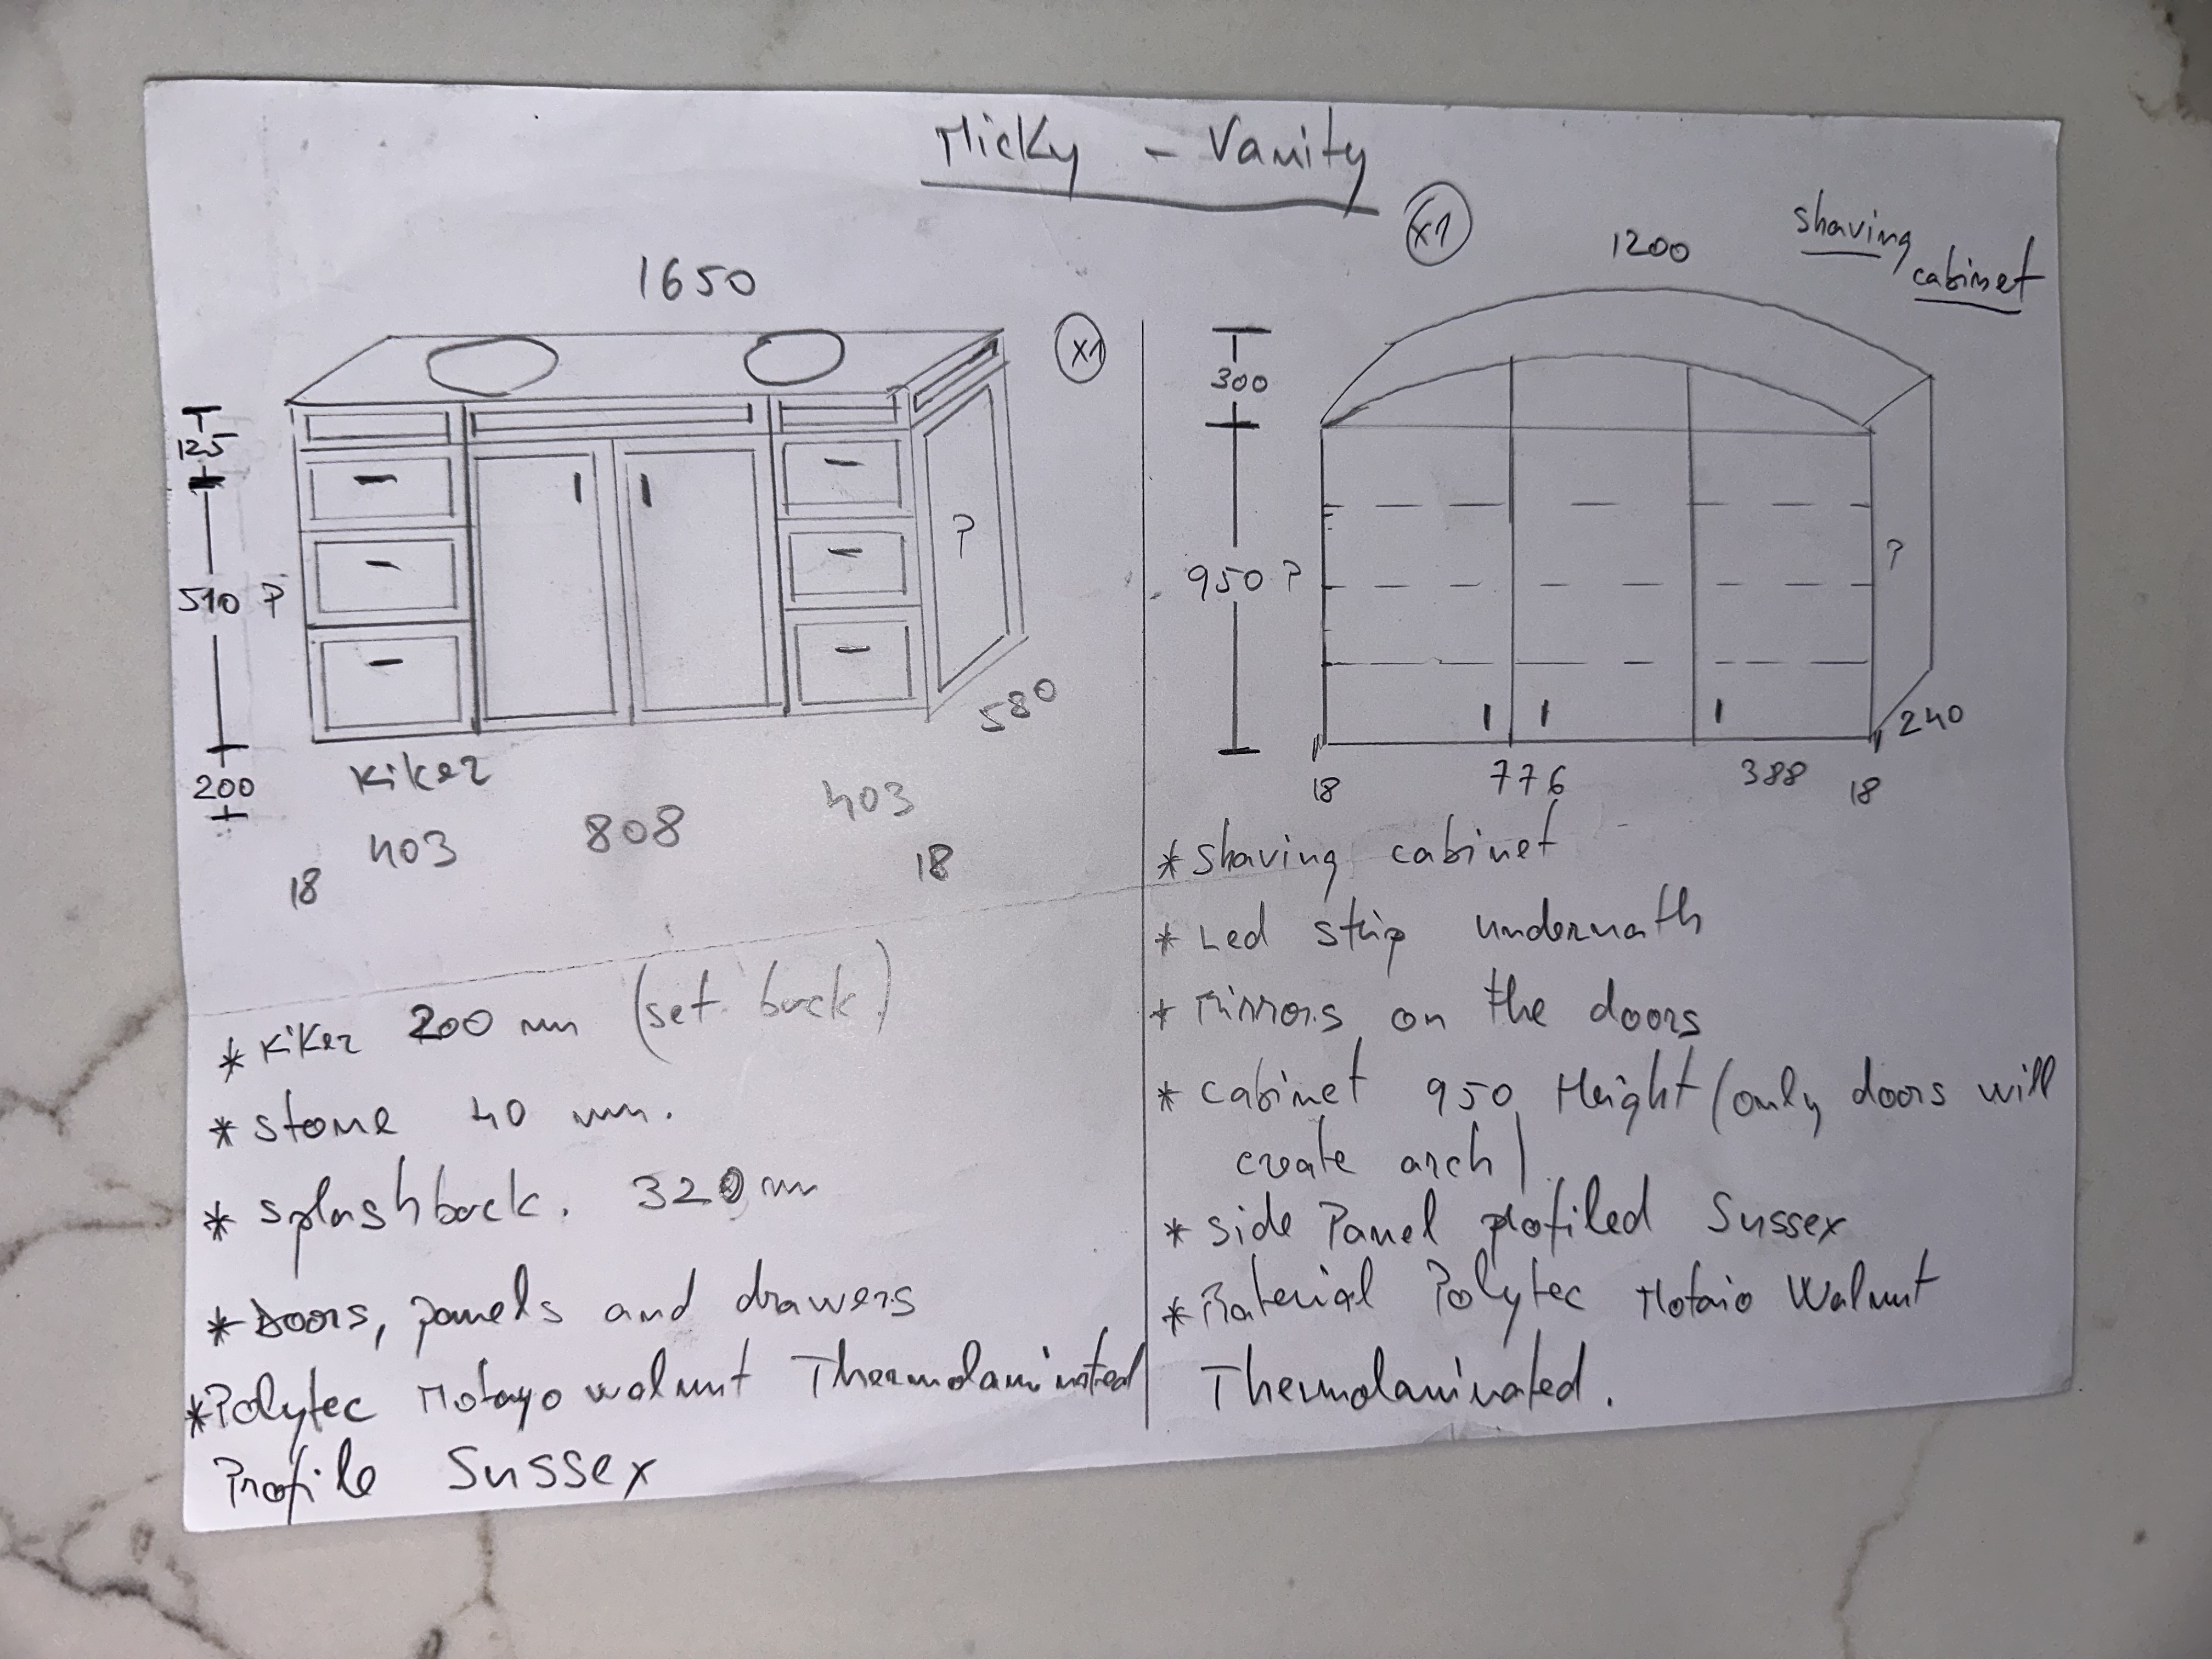 Micky - Vanity
x1
1650
x1
125
510 ?
200
?
580
Kiker
403
808
403
18
18
* Kiker 200 mm (set back)
* stone 40 mm.
* splashback. 320mm
* Doors, panels and drawers
* Polytec Notayo walnut Thermolaminated
Profile Sussex
shaving
cabinet
1200
300
950 ?
?
240
18
776
388
18
* Shaving cabinet
* Led strip undernath
* Mirrors on the doors
* Cabinet 950 Height (only doors will
create arch)
* side Panel profiled Sussex
* Material Polytec Notaio Walnut
Thermolaminated.